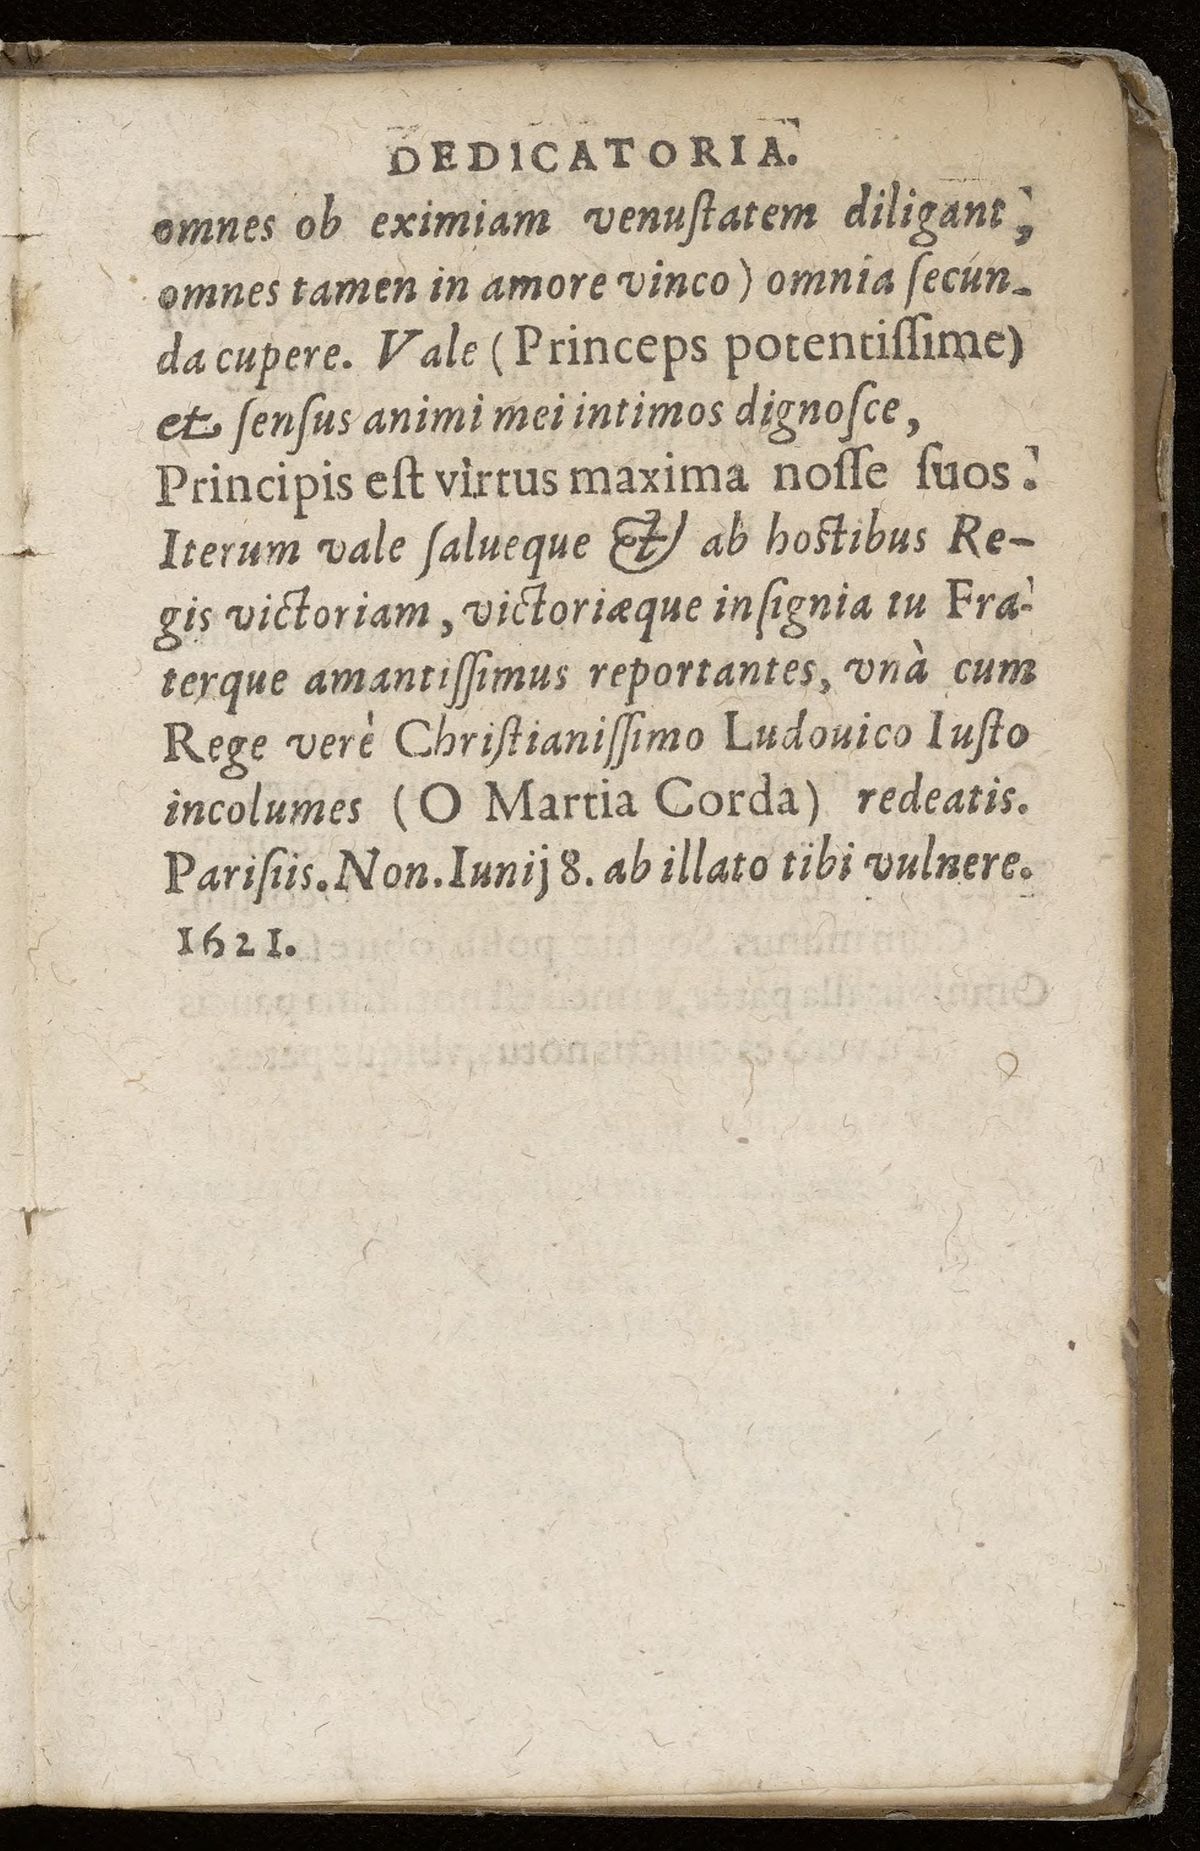 DEDICATORIA.
omnes ob eximiam venuſtatem diligant,
omnes tamen in amore vinco) omnia ſecun-
da cupere. Vale (Princeps potentiſſime)
et ſenſus animi mei intimos dignoſce,
Principis eſt virtus maxima noſſe ſuos.
Iterum vale ſalueque & ab hoſtibus Re-
gis victoriam, victoriæque inſignia tu Fra-
terque amantiſſimus reportantes, vnà cum
Rege verè Chriſtianiſſimo Ludouico Iuſto
incolumes (O Martia Corda) redeatis.
Pariſiis. Non. Iunij 8. ab illato tibi vulnere.
1621.